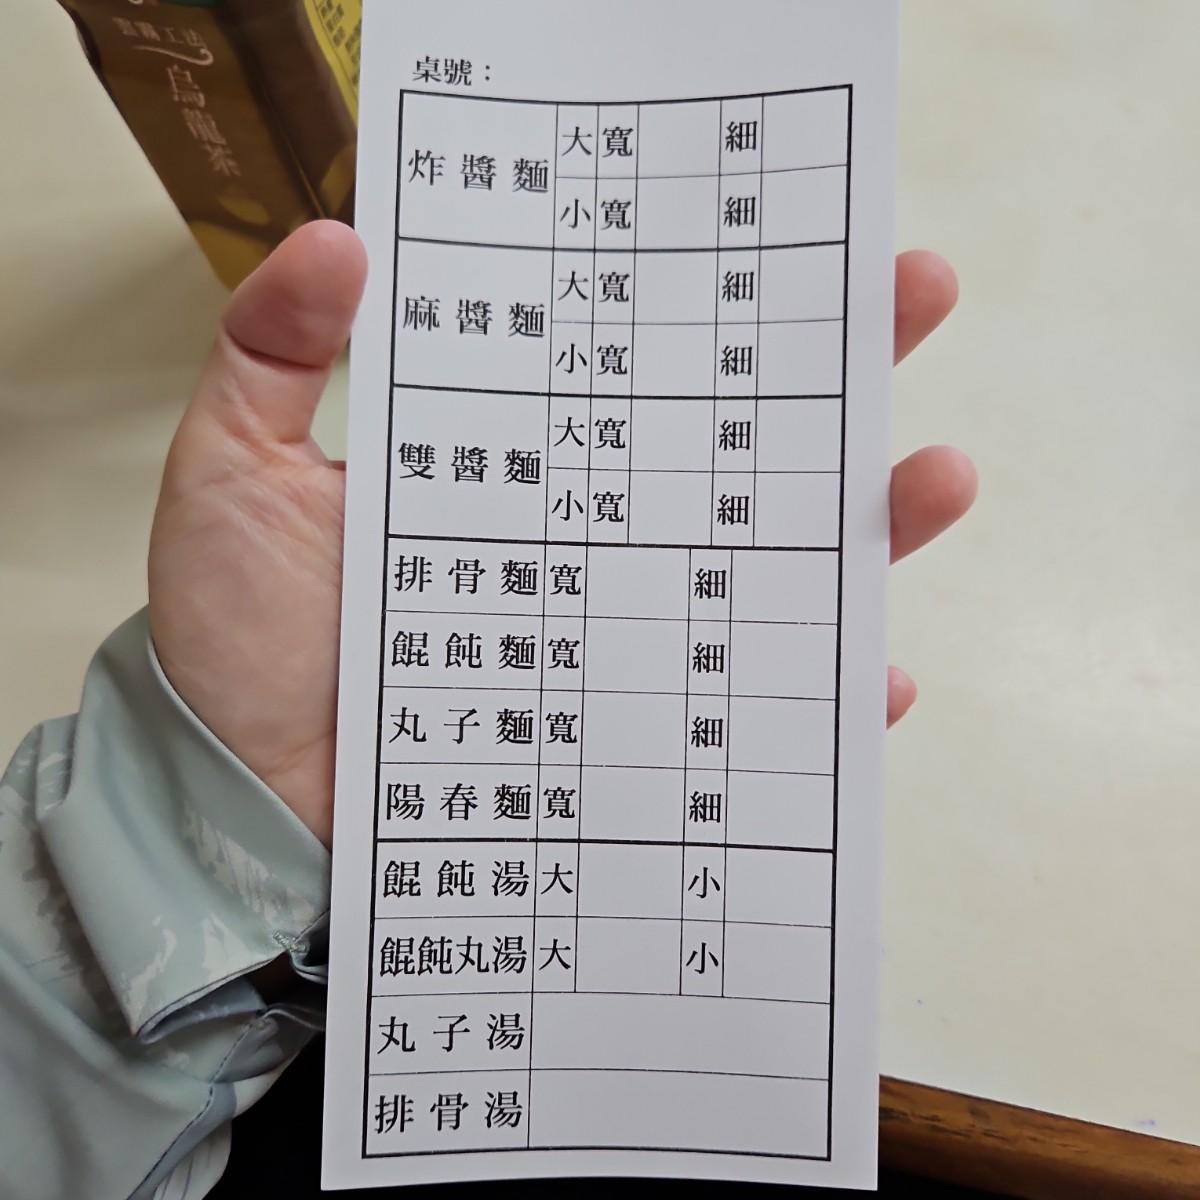 雲霧工法
烏龍茶
桌號：
炸醬麵 大 寬 細
小 寬 細
麻醬麵 大 寬 細
小 寬 細
雙醬麵 大 寬 細
小 寬 細
排骨麵 寬 細
餛飩麵 寬 細
丸子麵 寬 細
陽春麵 寬 細
餛飩湯 大 小
餛飩丸湯 大 小
丸子湯
排骨湯